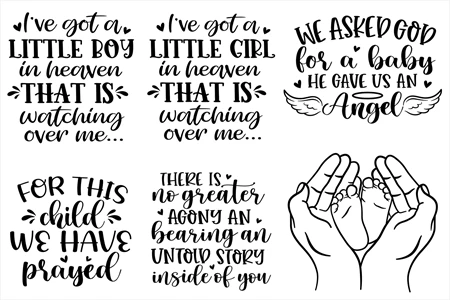 I've got a
LITTLE BOY
in heaven
THAT IS
watching
over me...
I've got a
LITTLE GIRL
in heaven
THAT IS
watching
over me...
WE ASKED GOD
for a baby
HE GAVE US AN
Angel
FOR THIS
child
WE HAVE
prayed
THERE IS
no greater
AGONY AN
bearing an
UNTOLD STORY
inside of you